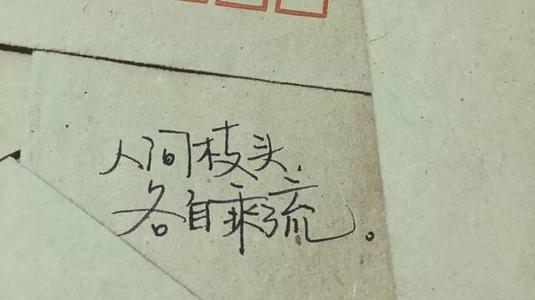 人间枝头，
各自乘流。